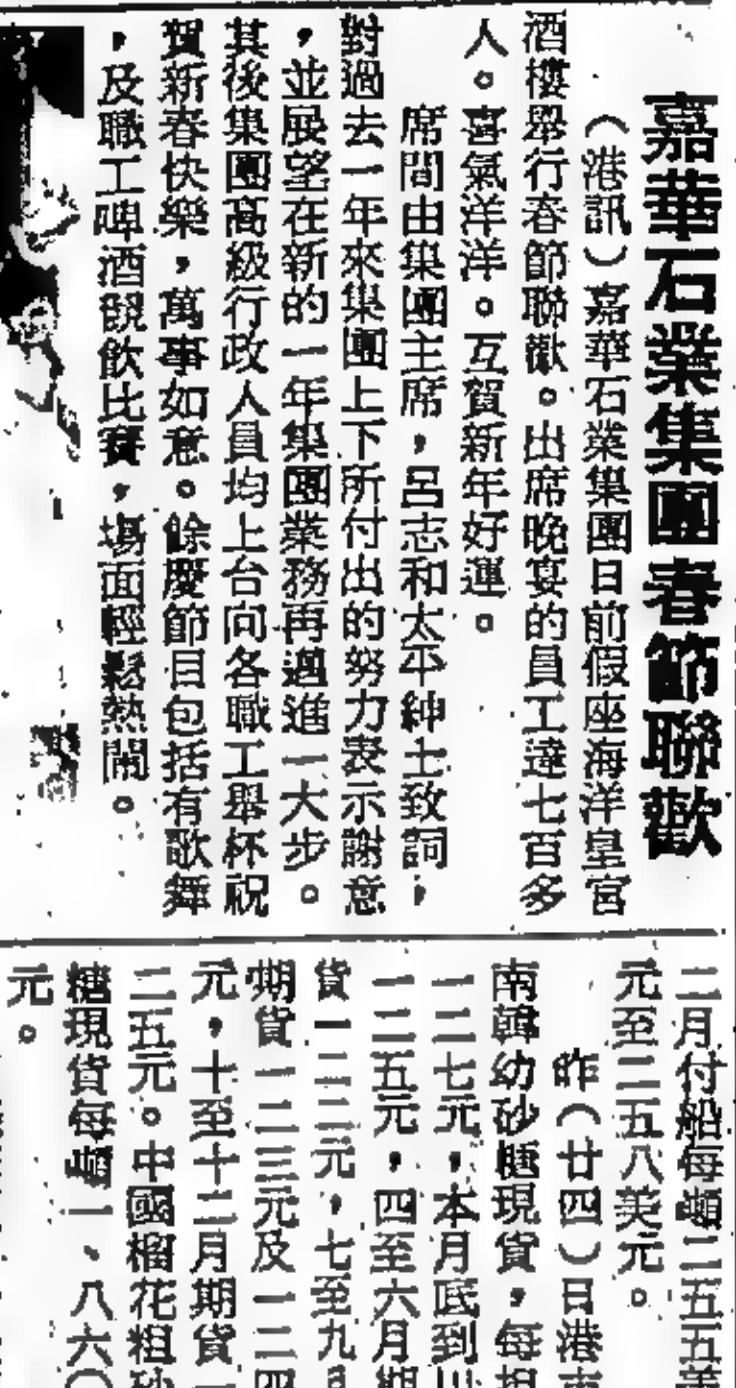 嘉華石業集團春節聯歡
（港訊）嘉華石業集團日前假座海洋皇宮
酒樓舉行春節聯歡。出席晚宴的員工達七百多
人。喜氣洋洋。互賀新年好運。
席間由集團主席，呂志和太平紳士致詞，
對過去一年來集團上下所付出的努力表示謝意
，並展望在新的一年集團業務再邁進一大步。
其後集團高級行政人員均上台向各職工舉杯祝
賀新春快樂，萬事如意。餘慶節目包括有歌舞
，及職工啤酒競飲比賽，場面輕鬆熱鬧。
二月付船每噸二五五美
元至二五八美元。
昨（廿四）日港市
南韓幼砂糖現貨，每担
一二七元，本月底到
一二五元，四至六月期
貨一二二元，七至九月
期貨一二三元及一二四
元，十至十二月期貨一
二五元。中國榴花粗砂
糖現貨每噸一、八六〇
元。